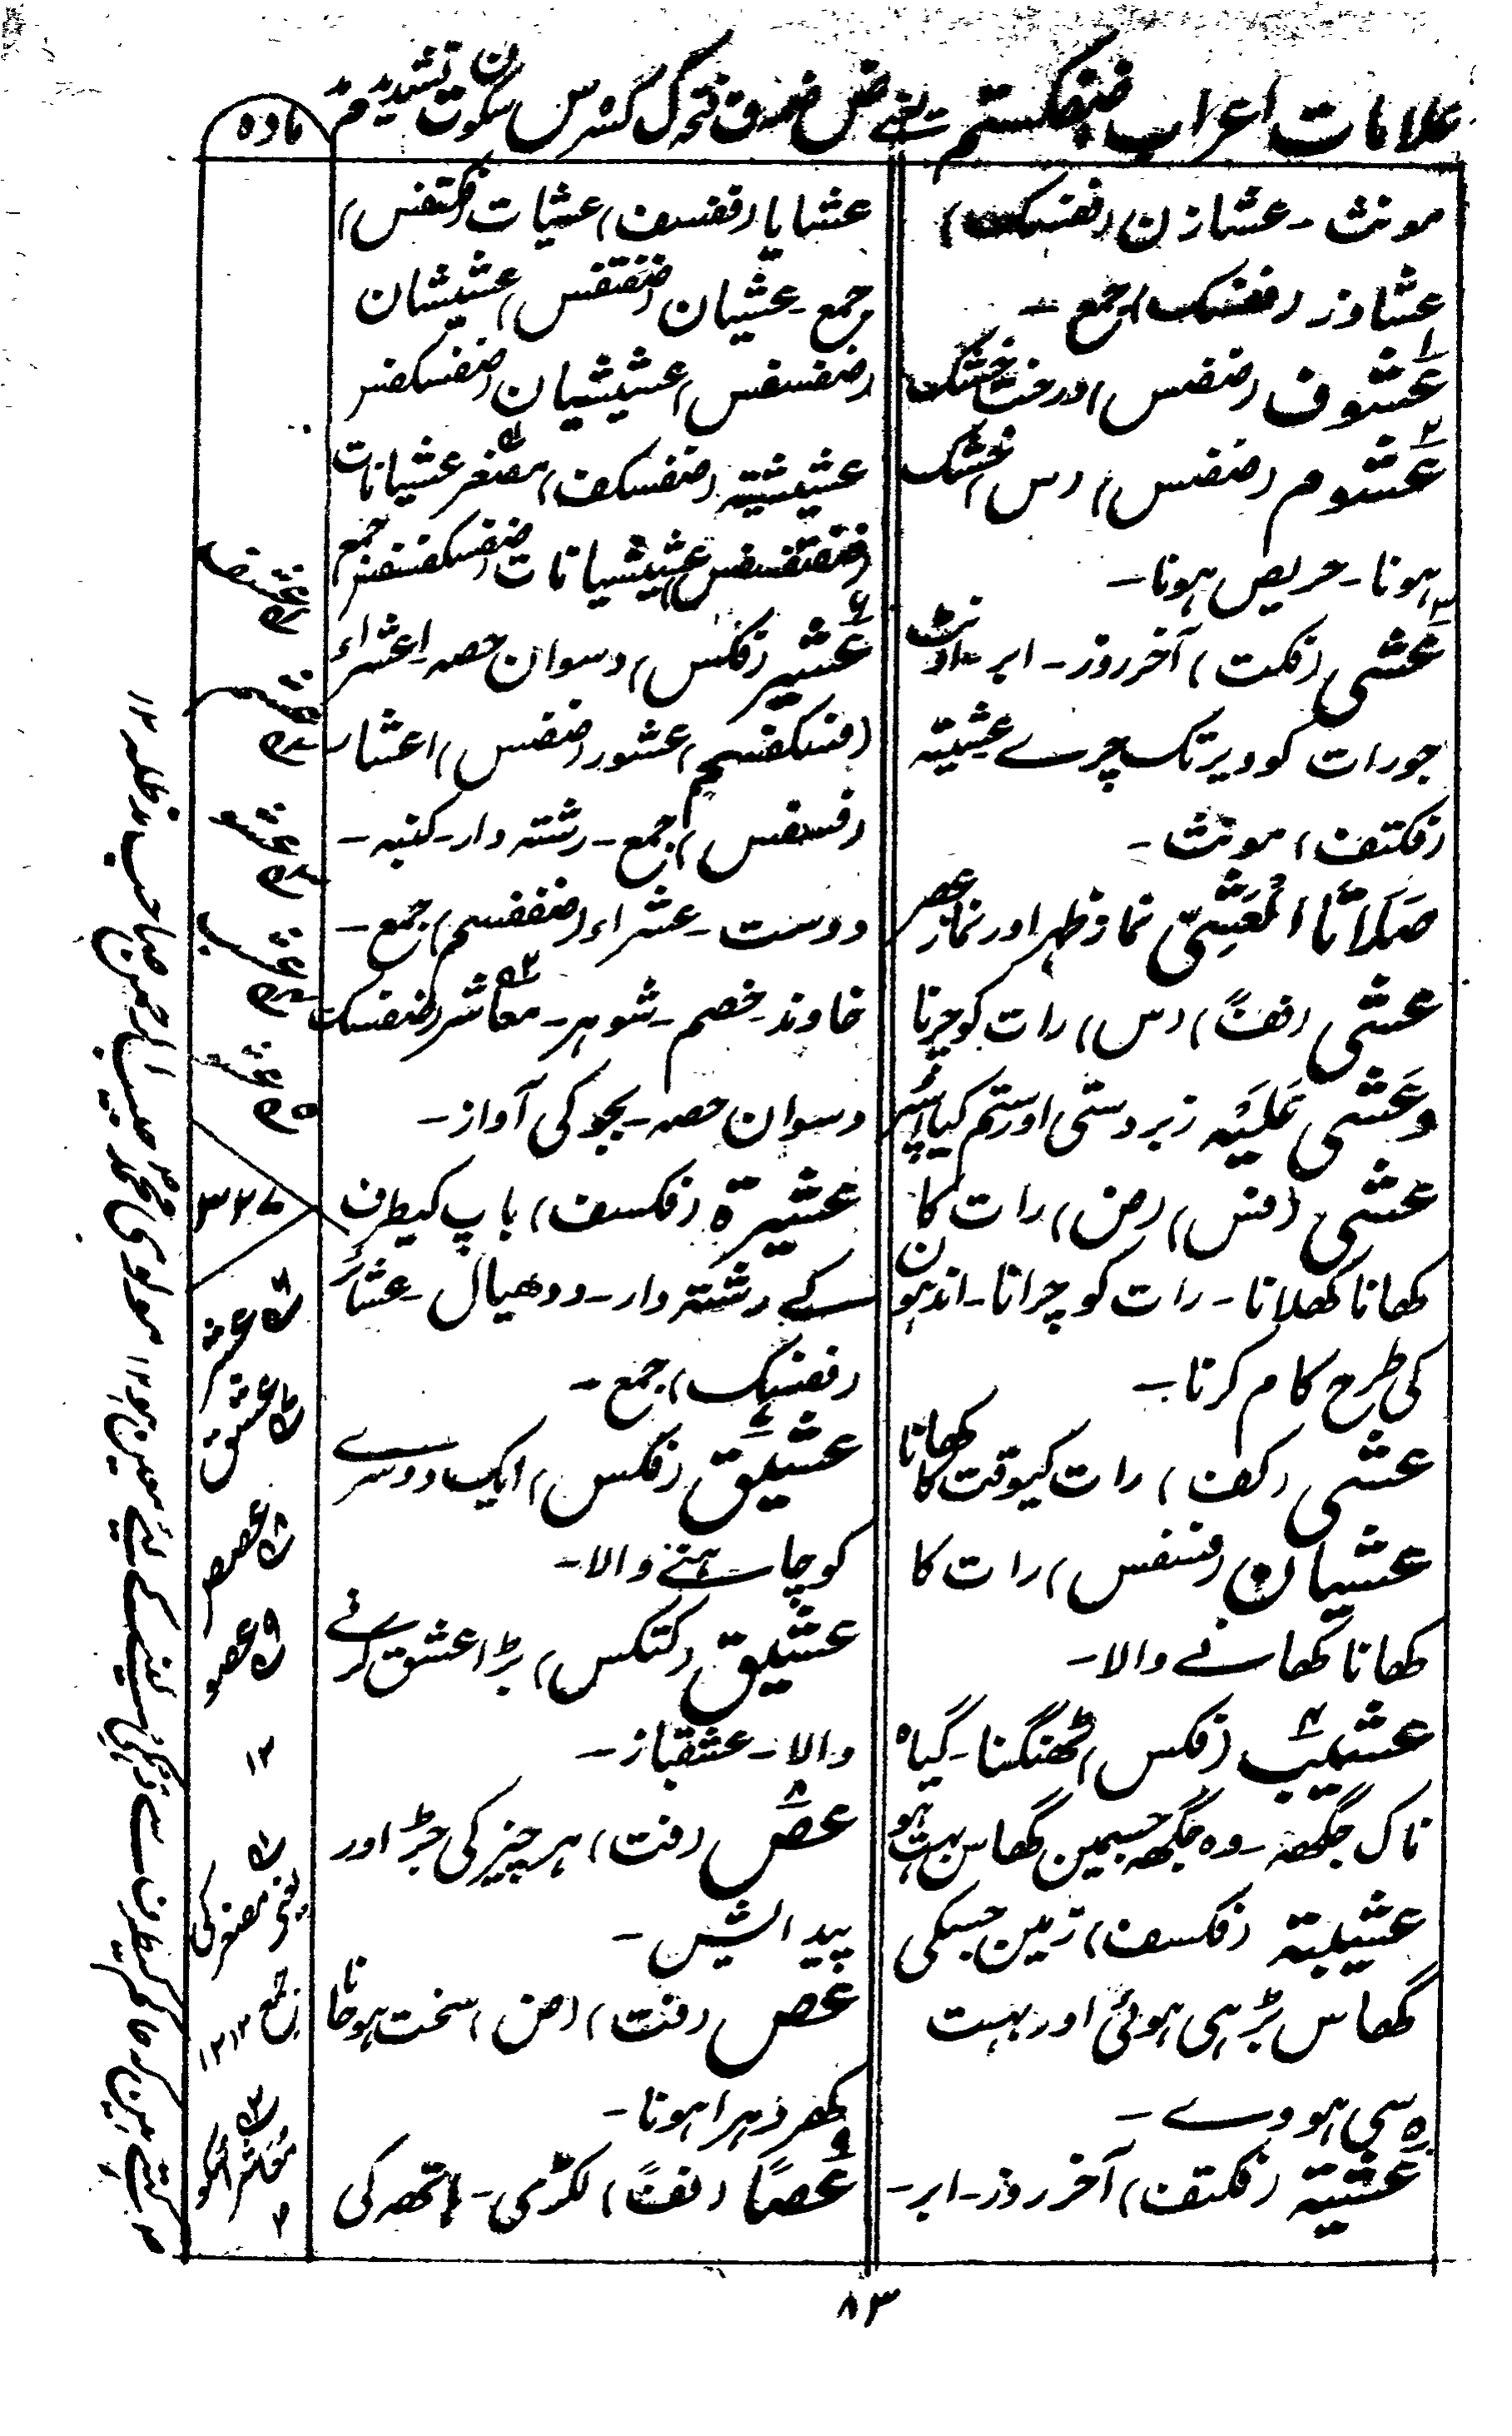 علامات اعراب ضفکستم یعنے ض ضمہ ف فتحہ ک کسرہ س سکون ت تشدید م مد
مادہ
مونث - عشازن (فضسک)
عشاوز (ففسک) جمع -
عشوف (ضفس) درخت خشک
عشوم (ضفس) (س) خشک
ہونا - حریص ہونا -
عشی (فکت) آخر روز - ابر - اونٹ
جو رات کو دیر تک چرے عشیتہ
(فکتف) مونث -
صَلَاتَا الْعَشِیّ نماز ظہر اور نماز عصر
عشی (ففً) (س) رات کو چرنا
وَعَشی عَلَیْہ زبردستی اور ستم کیا اسپر
عشی (فس) (ض) رات کا
کھانا کھلانا - رات کو چرانا - اندھوں
کی طرح کام کرنا -
عشی (کف) رات کیوقت کا کھانا
عشیان (فسفس) رات کا
کھانا کھانے والا -
عشیب (فکس) ٹھنگنا - گیاہ
ناک جگھہ - وہ جگھہ جسمین گھاس بہت ہو
عشیبتہ (فکسف) زمین جسکی
گھاس بڑہی ہوئی اور بہت
سی ہووے -
عشیتہ (فکتف) آخر روز - ابر -
عشایا (ففسف) عشیات (فکتفس)
جمع - عشیان (ضفتفس) عشیشان
(ضفسفس) عشیشیان (ضفسکفس
عشیشیتہ (ضفسکف) مصغر عشیانات
(ضفتفسفس) عشیشیانات (ضفسکفسفس) جمع
عشیر (فکس) دسوان حصہ - اعشراء
(فسکفسم) عشور (ضفس) اعشار
(فسفس) جمع - رشتہ دار - کنبہ -
دوست - عشراء (ضففسم) جمع -
خاوند - خصم - شوہر - معاشر (ضفسک
دسوان حصہ - بجو کی آواز -
عشیرة (فکسف) باپ کیطرف
کے رشتہ دار - ددھیال - عشائر
(ففسک) جمع -
عشیق (فکس) ایک دوسرے
کو چاہنے والا -
عشیق (کتکس) بڑا عشق کرنے
والا - عشقباز -
عص (فت) ہر چیز کی جڑ اور
پیدائش -
عص (فت) (ض) سخت ہو جانا
کھر دہرا ہونا -
عصًا (ففً) لکڑی - ہاتھہ کی
عشف
عشم
عشو
عشب
عشو
۳۳۷
عشر
عشق
عصص
عصو
۱۲
یعنی مصغر کی
جمع ۱۲
۸۳